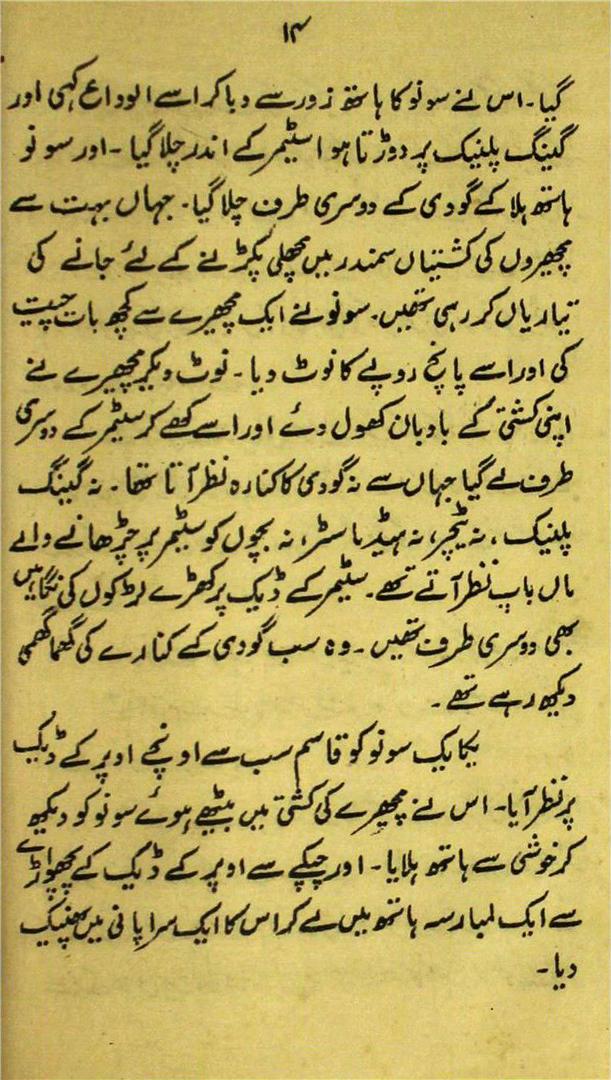 ۱۴
گیا۔ اس نے سونو کا ہاتھ زور سے دبا کر اسے الوداع کہی اور
گینگ پلینک پر دوڑتا ہوا سٹیمر کے اندر چلا گیا۔ اور سونو
ہاتھ ہلا کے گودی کے دوسری طرف چلا گیا۔ جہاں بہت سے
مچھیروں کی کشتیاں سمندر میں مچھلی پکڑنے کے لئے جانے کی
تیاریاں کر رہی تھیں۔ سونو نے ایک مچھیرے سے کچھ بات چیت
کی اور اسے پانچ روپے کا نوٹ دیا۔ نوٹ دیکر مچھیرے نے
اپنی کشتی کے بادبان کھول دئے اور اسے کھے کر سٹیمر کے دوسری
طرف لے گیا جہاں سے نہ گودی کا کنارہ نظر آتا تھا۔ نہ گینگ
پلینک، نہ ٹیچر، نہ ہیڈ ماسٹر، نہ بچوں کو سٹیمر پر چڑھانے والے
ماں باپ نظر آتے تھے۔ سٹیمر کے ڈیک پر کھڑے لڑکوں کی نگاہیں
بھی دوسری طرف تھیں۔ وہ سب گودی کے کنارے کی گہما گہمی
دیکھ رہے تھے۔
یکایک سونو کو قاسم سب سے اونچے اوپر کے ڈیک
پر نظر آیا۔ اس نے مچھیرے کی کشتی میں بیٹھے ہوئے سونو کو دیکھ
کر خوشی سے ہاتھ ہلایا۔ اور چپکے سے اوپر کے ڈیک کے پچھواڑے
سے ایک لمبا رسہ ہاتھ میں لے کر اس کا ایک سرا پانی میں پھینک
دیا۔